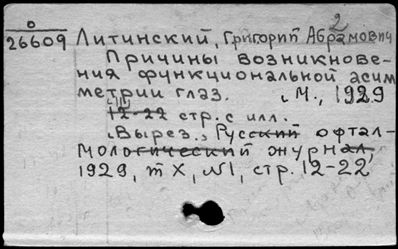 0
26609 Литинский, Григорий Абрамович
2
Причины возникнове-
ния функциональной асим
метрии глаз. М., 1929
12-22 стр. с илл.
(Вырез., Русский офтал-
мологический журнал,
1929, т X, №1, стр. 12-22